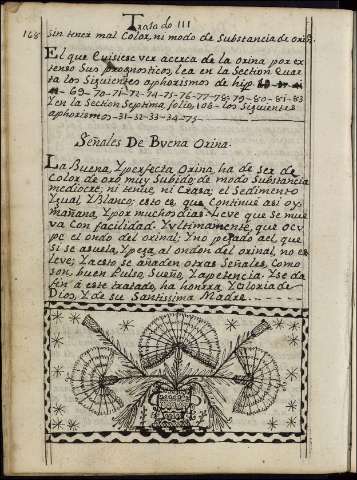 Tratado III
168
sin tener mal Color, ni modo de Substancia de orin.
El que Quisiese ver acerca de la orina por ex
tenso Sus prognosticos, lea en la Section Quar
ta los Siguientes aphorismos de hip.
69-70-71-72-74-75-76-77-78-79-80-81-83
Y en la Section Septima folio, 106- los Siguientes
aphorismos-31-32-33-34-75-
Señales De Buena Orina.
La Buena, Y perfecta Orina, ha de ser de
Color de oro muy Subido, de modo Substancia
mediocre; ni tenue, ni Crasa; el Sedimento
Ygual, Y Blanco; esto es, que Continue asi oy,
mañana, Y por muchos dias: Leve que se mue
va Con facilidad: Y ultimamente, que ocu
pe el ondo del orinal; Y no pegado ael, que
si se asuela, Y pega al ondon del orinal, no es
leve; Y a esto se añaden otras Señales, Como
son, buen Pulso, Sueño, Y apetencia. Y se da
fin à este tratado, ha honrra, Y Gloria de
Dios, Y de su Santissima Madre